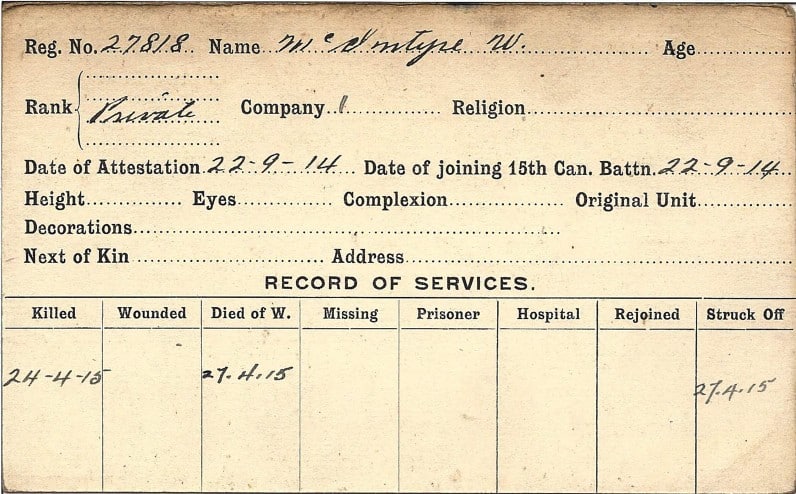 Reg. No. 27818 Name McIntyre W. Age
Rank Private Company 1 Religion
Date of Attestation 22-9-14 Date of joining 15th Can. Battn. 22-9-14
Height Eyes Complexion Original Unit
Decorations
Next of Kin Address
RECORD OF SERVICES.
Killed Wounded Died of W. Missing Prisoner Hospital Rejoined Struck Off
24-4-15 27.4.15 27.4.15